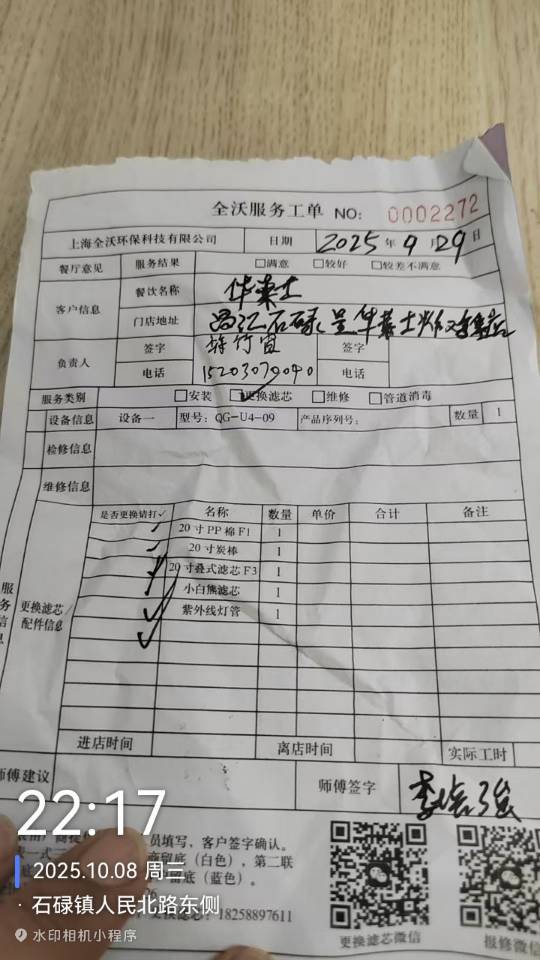 全沃服务工单 NO: 0002272
上海全沃环保科技有限公司 日期 2025年9月29日
餐厅意见 服务结果 □满意 □较好 □较差不满意
客户信息 餐饮名称 华莱士
门店地址 昌江石碌 华莱士
负责人 签字 签字
电话 15203070090 电话
服务类别 □安装 □更换滤芯 □维修 □管道消毒
设备信息 设备一 型号: QG-U4-09 产品序列号: 数量 1
检修信息
维修信息
服务信息
更换滤芯/配件信息
是否更换请打✓ 名称 数量 单价 合计 备注
✓ 20寸PP棉F1 1
✓ 20寸炭棒 1
✓ 20寸叠式滤芯F3 1
小白熊滤芯 1
✓ 紫外线灯管 1
✓
进店时间 离店时间 实际工时
师傅建议 师傅签字
员填写,客户签字确认。
留底(白色),第二联
底(蓝色)。
18258897611
更换滤芯微信 报修微信
22:17
2025.10.08 周三
· 石碌镇人民北路东侧
水印相机小程序